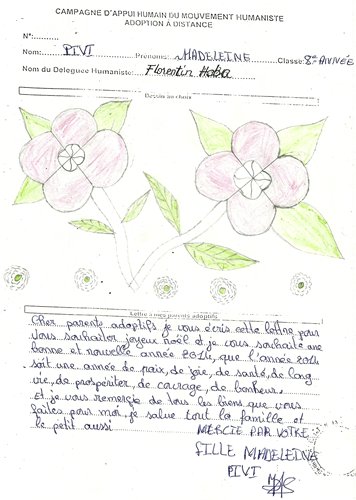 CAMPAGNE D'APPUI HUMAIN DU MOUVEMENT HUMANISTE
ADOPTION À DISTANCE
N°:
Nom: PIVI Prénoms: MADELEINE Classe: 8e ANNÉE
Nom du Delegue Humaniste: Florentin Haba
Dessin au choix
Lettre à mes parents adoptifs
Cher parents adoptifs je vous écris cette lettre pour
vous souhaiter joyeux noël et je vous souhaite une
bonne et nouvelle année 2014, que l'année 2014
soit une année de paix, de joie, de santé, de long
vie, de prospériter, de courage, de bonheur.
Et je vous remergie de tous les biens que vous
faites pour moi, je salue tout la famille et
le petit aussi
MERCIE PAR VOTRE
FILLE MADELEINE
PIVI